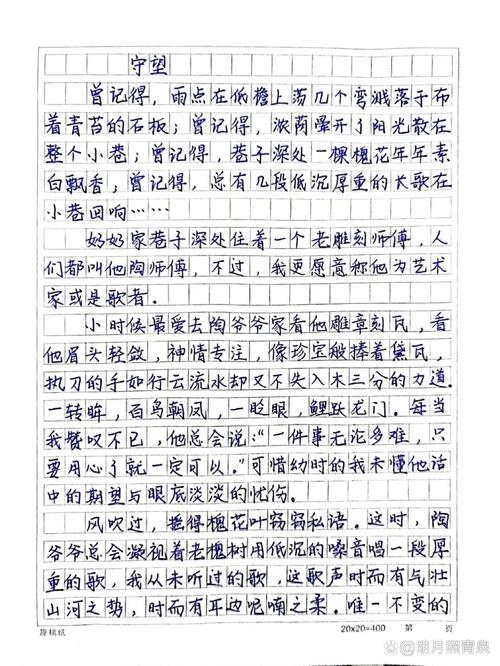 守望
曾记得，雨点在低檐上荡几个弯溅落于布
着青苔的石板；曾记得，浓荫晕开了阳光散在
整个小巷；曾记得，巷子深处一棵槐花年年素
白飘香；曾记得，总有几段低沉厚重的大歌在
小巷回响……
奶奶家巷子深处住着一个老雕刻师傅，人
们都叫他陶师傅，不过，我更愿意称他为艺术
家或是歌者。
小时候最爱去陶爷爷家看他雕章刻瓦，看
他眉头轻敛，神情专注，像珍宝般捧着黛瓦，
执刀的手如行云流水却又不失入木三分的力道。
一转眸，百鸟朝凤，一眨眼，鲤跃龙门。每当
我赞叹不已，他总会说："一件事无论多难，只
要用心了就一定可以。"可惜幼时的我未懂他话
中的期望与眼底淡淡的忧伤。
风吹过，惹得槐花叶窃窃私语。这时，陶
爷爷总会凝视着老槐树用低沉的嗓音唱一段厚
重的歌，我从未听过的歌，这歌声时而有气壮
山河之势，时而有耳边呢喃之柔。唯一不变的
原稿纸
20×20=400 第 页
@明月照青泉